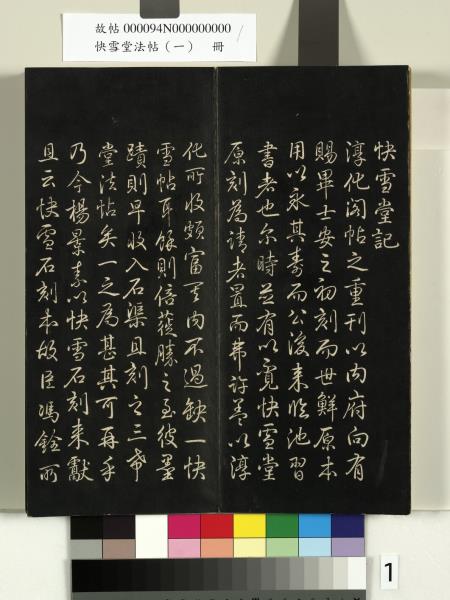 故帖 000094N000000000
快雪堂法帖（一） 冊
快雪堂記
淳化閣帖之重刊以內府向有
賜畢士安之初刻而世鮮原本
用以永其壽而公後來臨池習
書者也尔時並有以覓快雪堂
原刻為請者置而弗許蓋以淳
化所收頗富其內不過缺一快
雪帖耳餘則倍蓰勝之至彼墨
蹟則早收入石渠且刻之三希
堂法帖矣一之為甚其可再乎
乃今楊景素以快雪石刻來獻
且云快雪石刻本故臣馮銓所
1